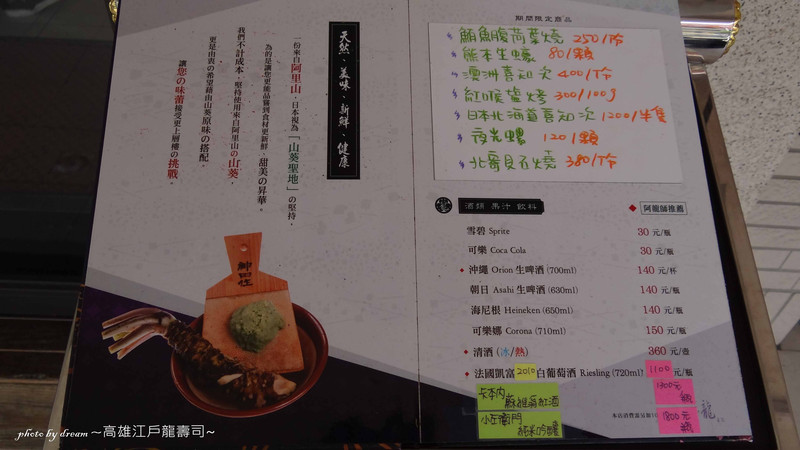 天然、美味、新鮮、健康
一份來自阿里山，日本視為「山葵聖地」的堅持，
為的是讓您更能品嘗到食材更新鮮、甜美的昇華。
我們不計成本，堅持使用來自阿里山の山葵，
更是由衷の希望藉由山葵原味の搭配，
讓您の味蕾接受更上層樓の挑戰。
神田性
期間限定商品
鮪魚腹荷葉燒 250/份
熊本生蠔 80/顆
澳洲喜知次 400/份
紅喉鹽烤 300/100g
日本北海道喜知次 1200/半隻
夜光螺 120/顆
北寄貝石燒 380/份
酒類 果汁 飲料
阿龍師推薦
雪碧 Sprite 30 元/瓶
可樂 Coca Cola 30 元/瓶
沖繩 Orion 生啤酒 (700ml) 140 元/杯
朝日 Asahi 生啤酒 (630ml) 140 元/瓶
海尼根 Heineken (650ml) 140 元/瓶
可樂娜 Corona (710ml) 150 元/瓶
清酒 (冰/熱) 360 元/壺
法國凱富 2010 白葡萄酒 Riesling (720ml) 1100 元/瓶
蘇維翁紅酒 1400元 瓶
小左衛門 純米吟釀 1800元 瓶
龍
photo by dream ～高雄江戶龍壽司～